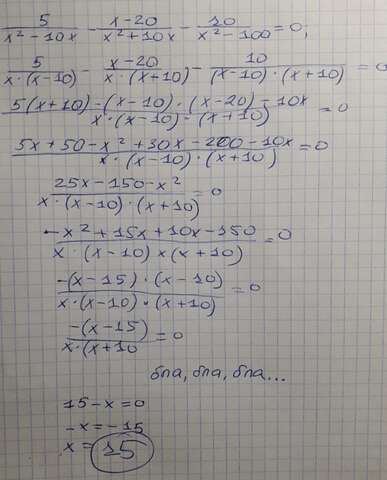 5/(x²-10x) - (x-20)/(x²+10x) - 10/(x²-100) = 0,
5/(x·(x-10)) - (x-20)/(x·(x+10)) - 10/((x-10)·(x+10)) = 0
(5(x+10)-(x-10)·(x-20)-10x)/(x·(x-10)-(x+10)) = 0
(5x+50-x²+30x-200-10x)/(x·(x-10)·(x+10)) = 0
(25x-150-x²)/(x·(x-10)·(x+10)) = 0
(-x²+15x+10x-150)/(x·(x-10)×(x+10)) = 0
(-(x-15)·(x-10))/(x·(x-10)·(x+10)) = 0
(-(x-15))/(x·(x+10) = 0
бла, бла, бла...
15-x=0
-x=-15
x=15